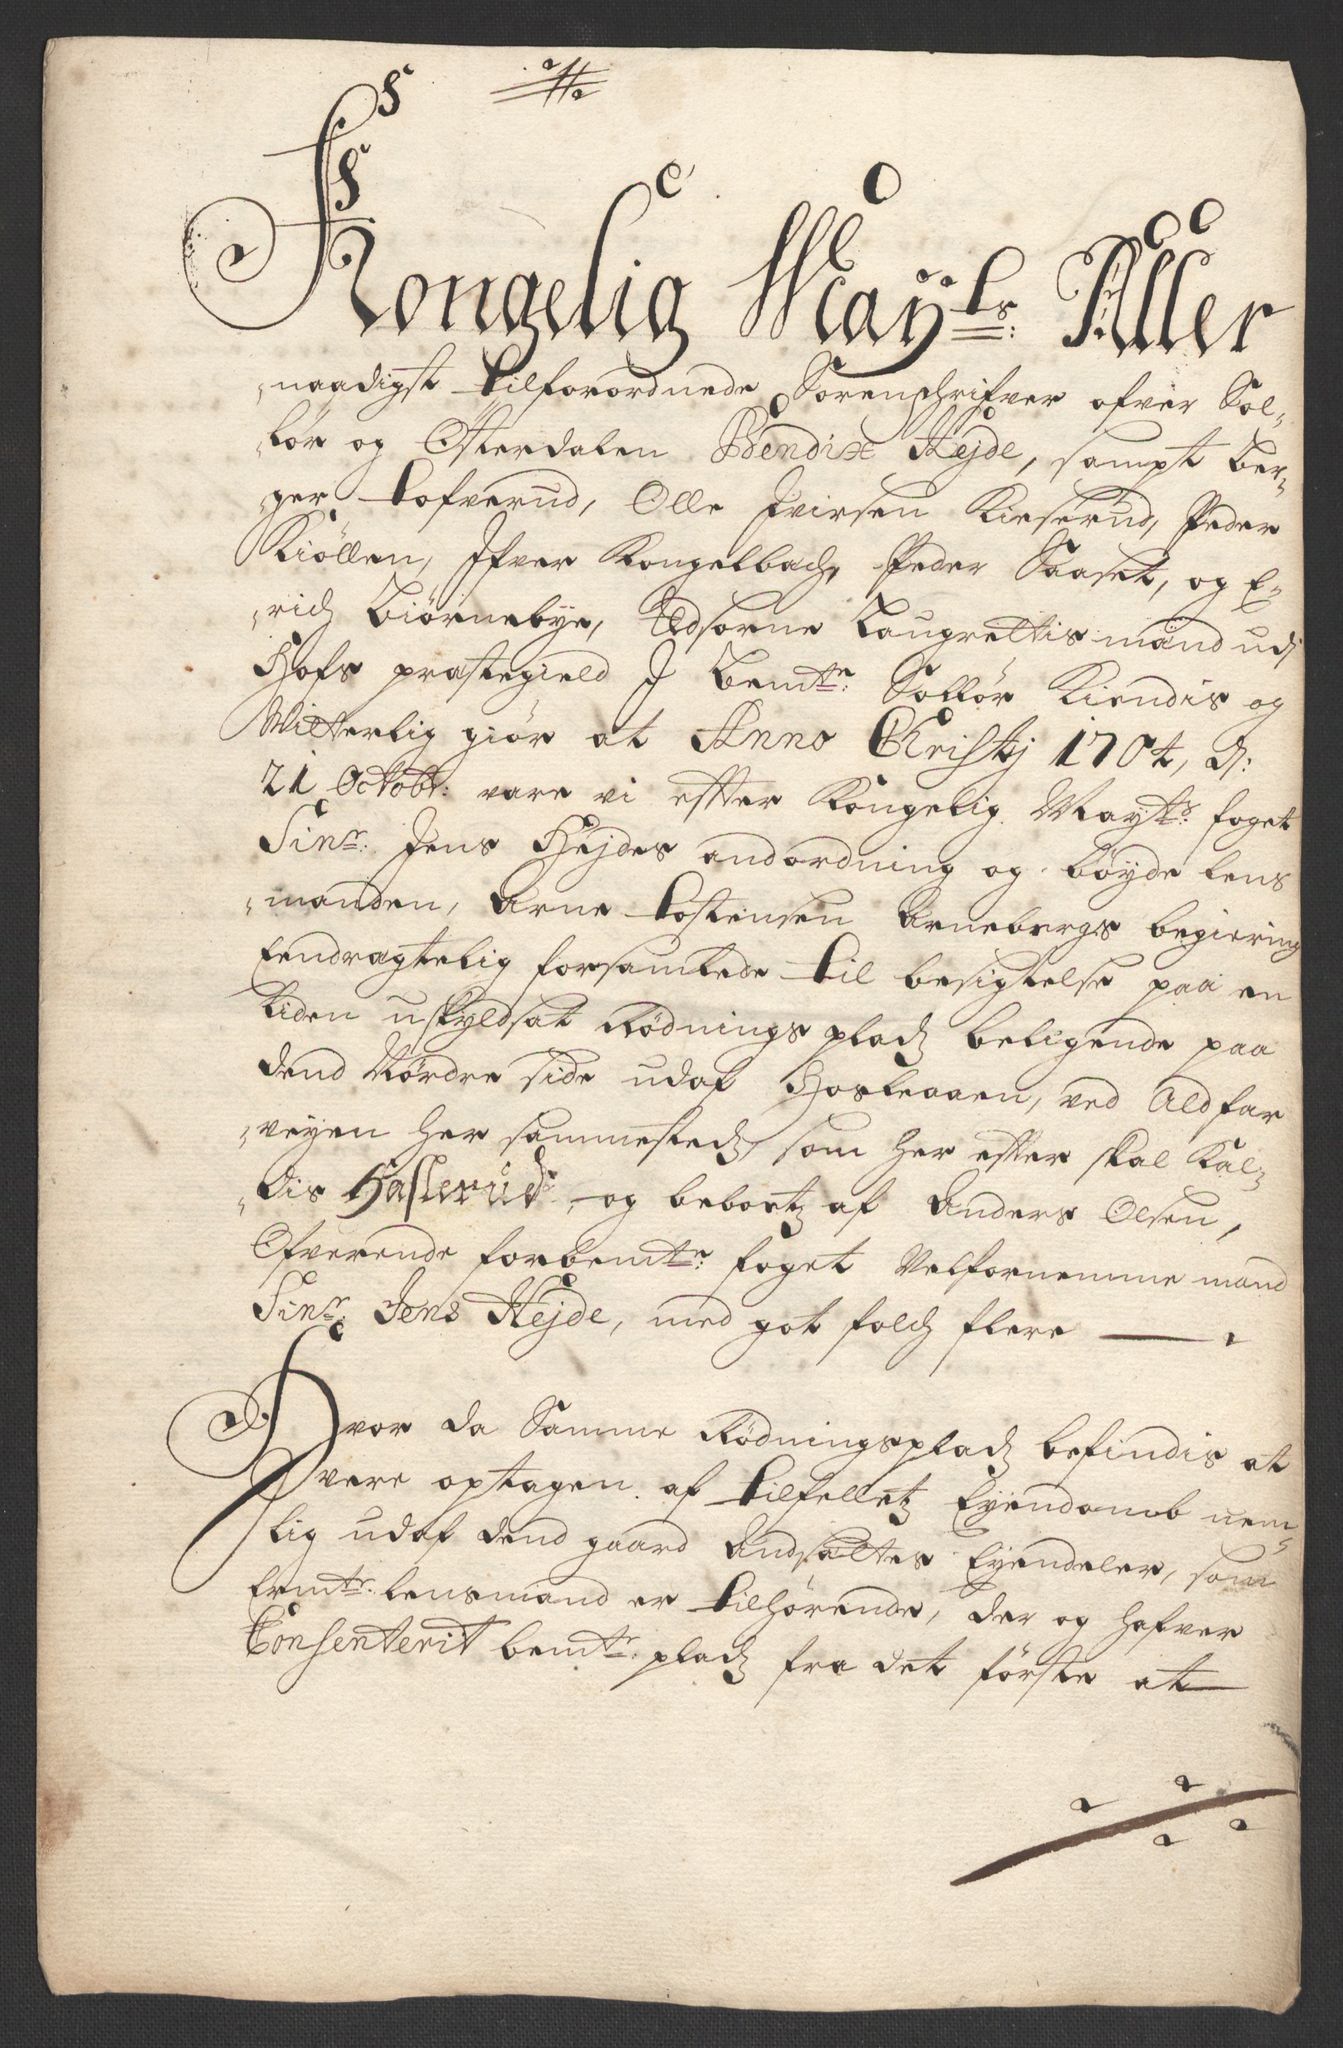 Kongelig Mayts: Aller
naadigst tilforordnede Sorenschrifver ofver Sol-
lör og Österdalen Bendix Hejde, sampt Ber-
ger Tofverud, Olle Ivirsen Kieserud, Peder
Kiöllen, Ifver Kongelbach, Peder Saaset, og E-
rich Biörnebye, Edsorne Laugrettis mænd udj
Hofs præstegield J bemte: Sollör Kiendis og
Witterlig giör at Anno Christij 1704, d:
21 Octobr: vare vi efter Kongelig Mayts: foget
Sinr: Jens Hejdes andordning og böyde lens
manden, Arne Tostensen Arnebergs begiering
Eendragtelig forsamlede til besigtelse paa en
liden uskyldsat Rödnings pladz beligende paa
dend Nordre side udaf Hasleaaen, ved Aldfar
veyen her sammestedz, som her efter skal kal-
dis Haslerud, og beboetz af Anders Olsen,
Ofverende forbemte: foget Velfornemme mand
Sinr: Jens Hejde, med got folch flere
Hvor da Samme Rödningspladz befindis at
vere optagen af tilfelletz Eyendomb nem-
lig udaf dend gaard Andsaltes Eyendeler, som
Ermte: lensmand er tilhörende, der og hafver
Consenterit bemte: pladz fra det förste at